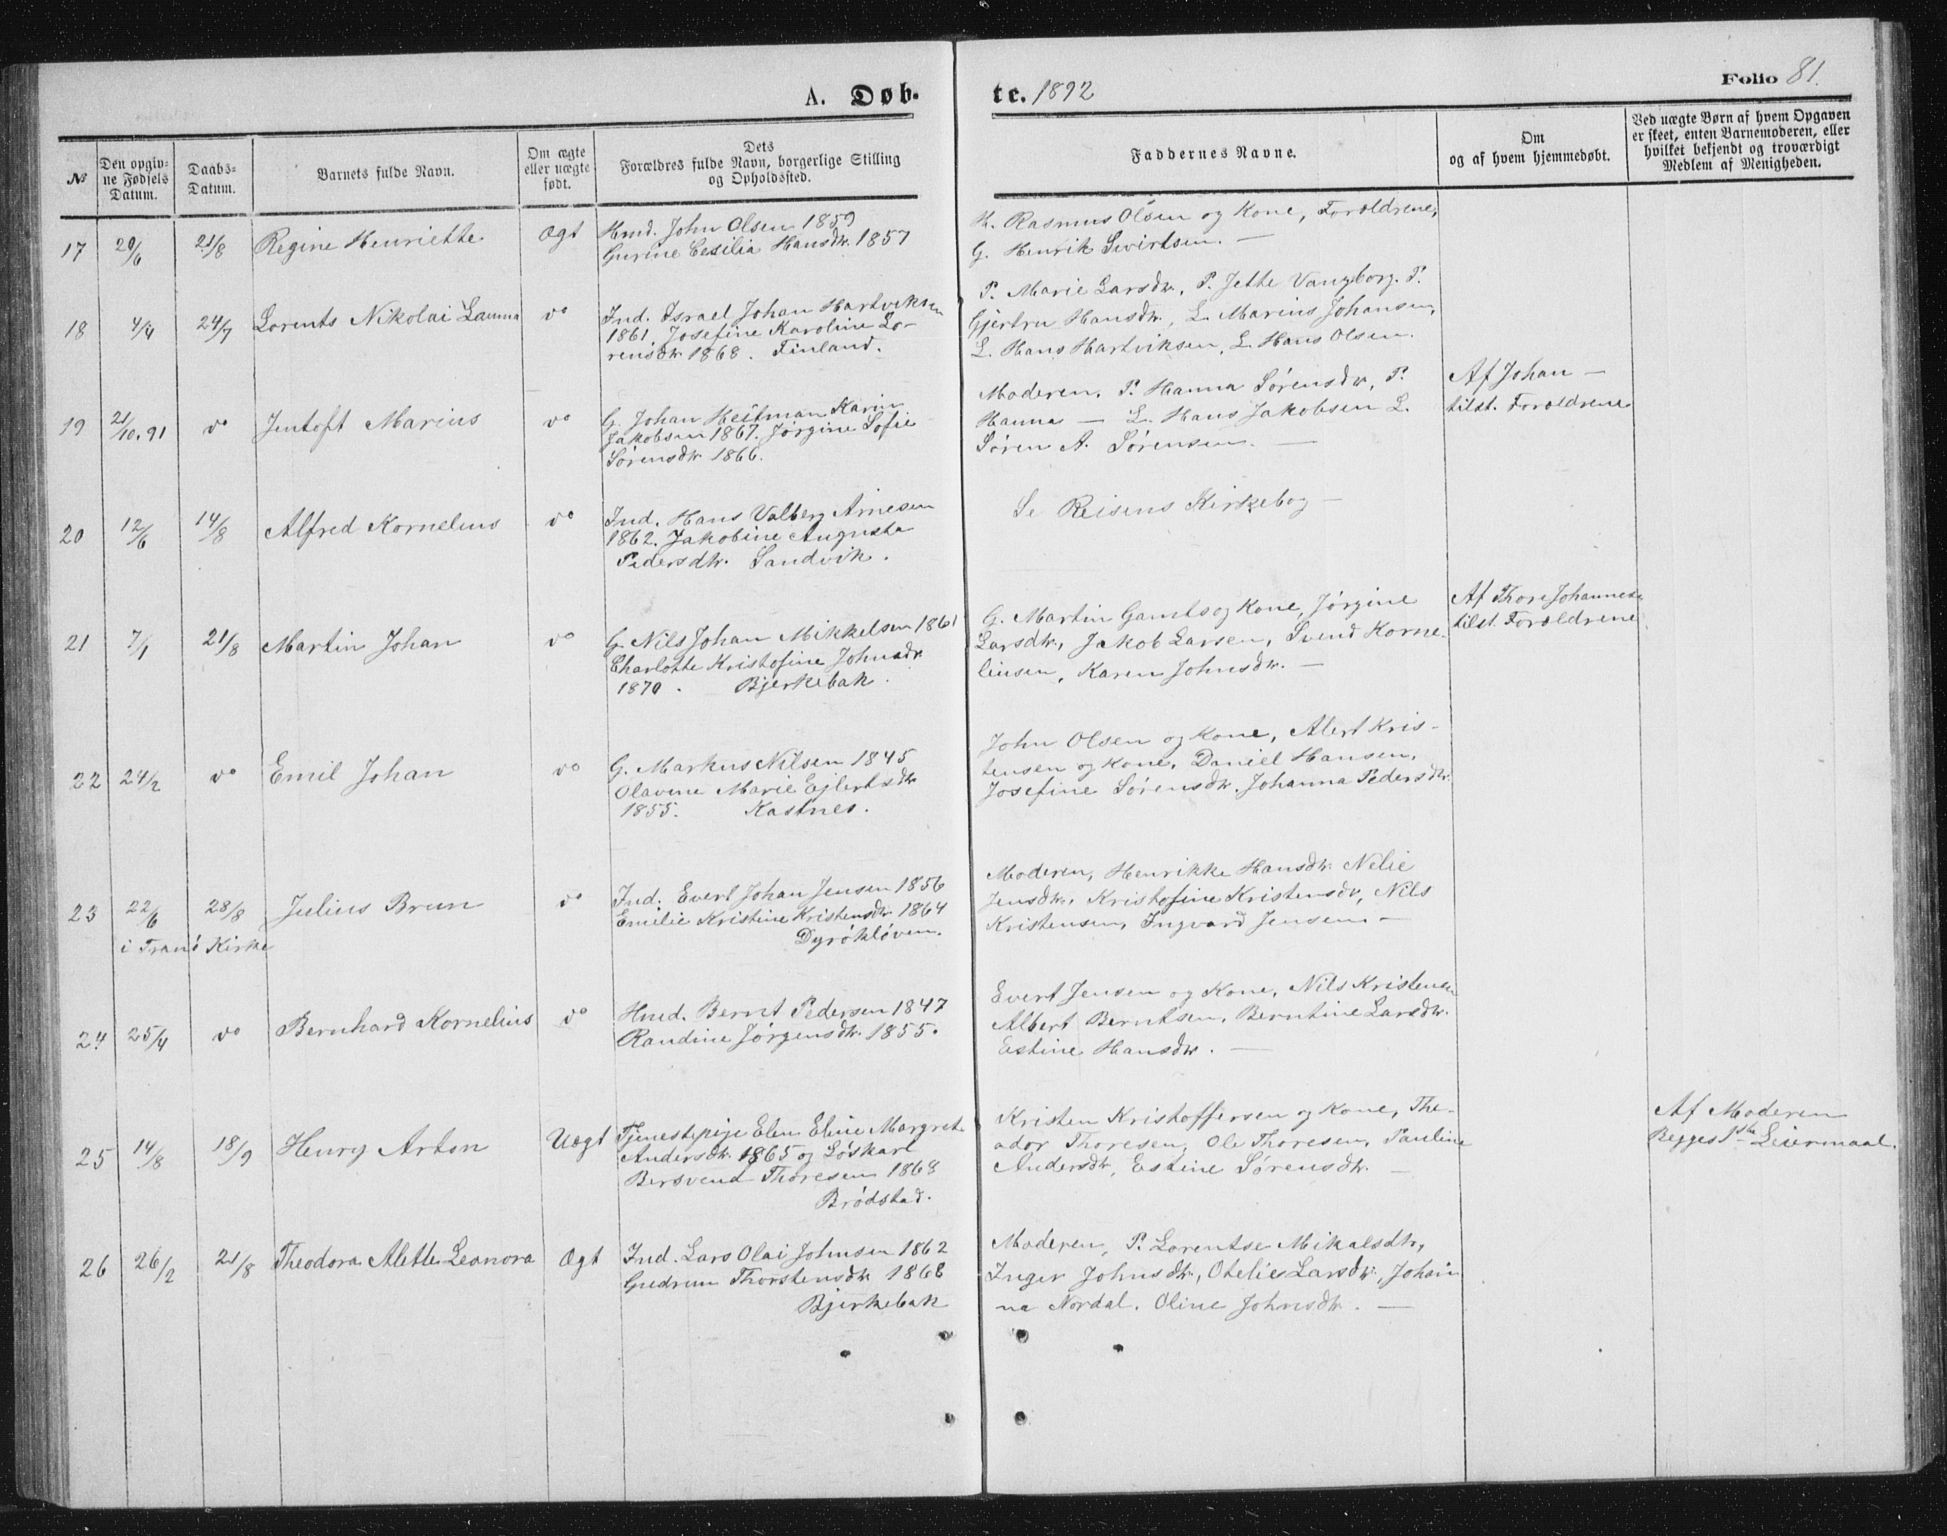 A. Døb-
te. 1892
Folio 81.
№
Den opgiv-
ne Fødsels
Datum.
Daabs-
Datum.
Barnets fulde Navn.
Om ægte
eller uægte
født.
Dets
Forældres fulde Navn, borgerlige Stilling
og Opholdssted.
Faddernes Navne.
Om
og af hvem hjemmedøbt.
Ved uægte Børn af hvem Opgaven
er skeet, enten Barnemoderen, eller
hvilket bekjendt og troværdigt
Medlem af Menigheden.
17 20/6 21/8 Regine Henriette Ægt
Hmd. John Olsen 1859
Gurine Cesilia Hansdtr. 1857
K. Rasmus Olsen og Kone, Forældrene,
G. Henrik Sivertsen. —
18 4/4 24/7 Lorents Nikolai Lamma do
Ind. Israel Johan Hartviksen
1861, Josefine Karoline Lo-
rensdtr. 1868. Finland.
P. Marie Larsdtr, P. Jette Vangborg. P.
Gjertru Hansdtr, L. Marius Johansen,
L. Hans Hartviksen, L. Hans Olsen.
19 21/10.91 do Jentoft Marius do
G. Johan Heitman Karin
Jakobsen 1867. Jørgine Sofie
Sørensdtr 1866.
Moderen, P. Hanna Sørensdtr, P.
Hanna — L. Hans Jakobsen L.
Søren A. Sørensen. —
Af Johan —
tilst. Forældrene
20 12/6 14/8 Alfred Kornelius do
Ind. Hans Valberg Arnesen
1862. Jakobine Augusta
Pedersdtr. Sandvik.
Se Reisens Kirkebog —
21 7/1 21/8 Martin Johan do
G. Nils Johan Mikkelsen 1861
Charlotte Kristofine Johnsdtr
1870. Bjerkebak.
G. Martin Gamts og Kone, Jørgine
Larsdtr, Jakob Larsen, Svend Korne-
liusen, Karen Johnsdtr. —
Af Thore Johannes.
tilst. Forældrene
22 24/2 do Emil Johan do
G. Markus Nilsen 1845
Olavine Marie Ejlertsdtr
1855. Kastnes.
John Olsen og Kone, Alert Kris-
tensen og Kone, Daniel Hansen,
Josefine Sørensdtr. Johanna Pedersdtr.
23 22/6 28/8 Julius Brun do
i Tranø Kirke
Ind. Evert Johan Jensen 1856
Emilie Kristine Kristensdtr 1864
Dyrøkløven.
Moderen, Henrikke Hansdtr. Nelie
Jensdtr. Kristofine Kristensdtr, Nils
Kristensen, Ingvard Jensen —
24 25/4 do Bernhard Kornelius do
Hmd. Bernt Pedersen 1847
Randine Jørgensdtr. 1855.
Evert Jensen og Kone, Nils Kristensen
Albert Berntsen, Berntine Larsdtr.
Estine Hansdtr. —
25 14/8 18/9 Henry Arton Uægt
Tjenestepige Elen Eline Margrete
Andersdtr. 1865 og Løskarl
Bersvend Thoresen 1868
Brødstad.
Kristen Kristoffersen og Kone, The-
ador Thoresen, Ole Thoresen, Pauline
Andersdtr, Estine Sørensdtr. —
Af Moderen
Begges 1ste Leiermaal.
26 26/2 21/8 Theodora Alette Leonora Ægt
Ind. Lars Olai Johnsen 1862
Gudrun Thorstensdtr 1868
Bjerkebak
Moderen, P. Lorentse Mikalsdtr,
Inger Johnsdtr, Otelie Larsdtr, Johan-
na Nordal. Oline Johnsdtr. —